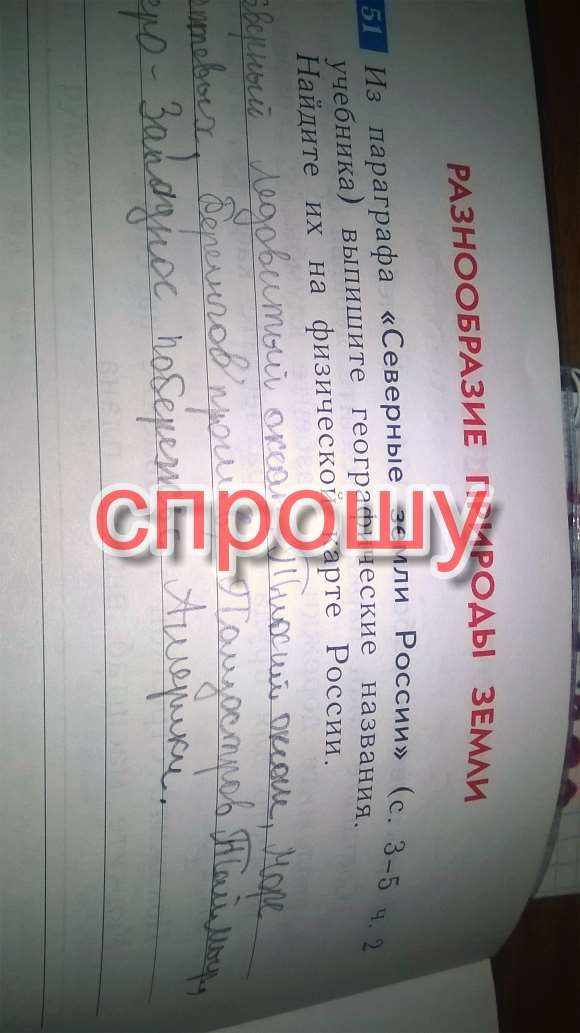 РАЗНООБРАЗИЕ ПРИРОДЫ ЗЕМЛИ
51 Из параграфа «Северные земли России» (с. 3–5 ч. 2
учебника) выпишите географические названия.
Найдите их на физической карте России.
Ледовитый океан, Тихий океан, Море
Берингов пролив, Полуостров Таймыр,
Западное побережье Америки.
спрошу